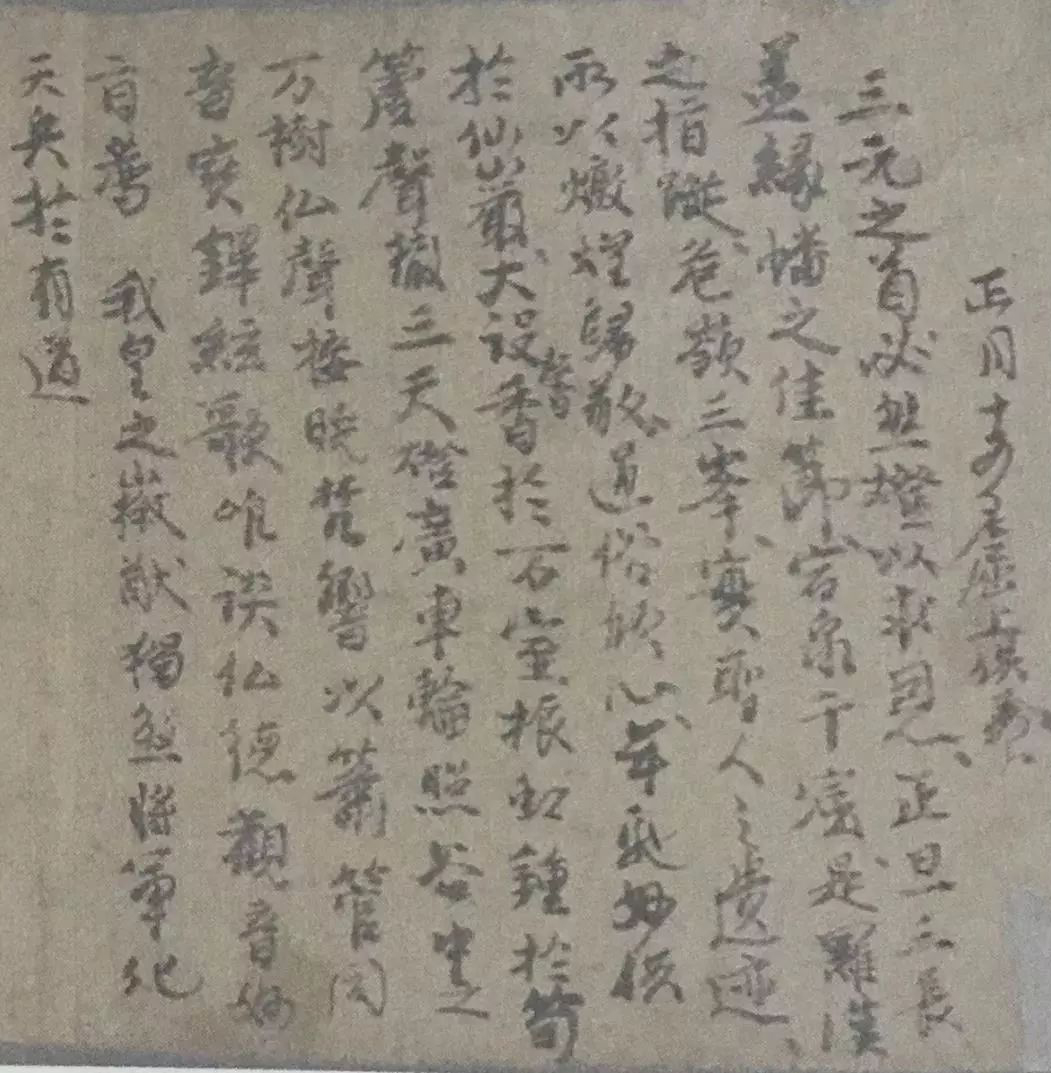 正月十五日窟上供養
三元之首必燃燈以求恩正旦三長
盖緣幡之佳節宕泉千窟是羅漢
之指蹤危嶺三峯實聖人之遺迹
所以燉煌歸敬道俗傾心年馳妙供
於仙巖大設馨香於万室振虹鍾於笋
簷聲徹三天燈廣車輪照谷中之
万樹仏聲接曉梵響以簫管同
音寶鐸絃歌唯談仏德觀音妙
旨薦 我皇之徽猷獨煞將軍化
天兵於有道